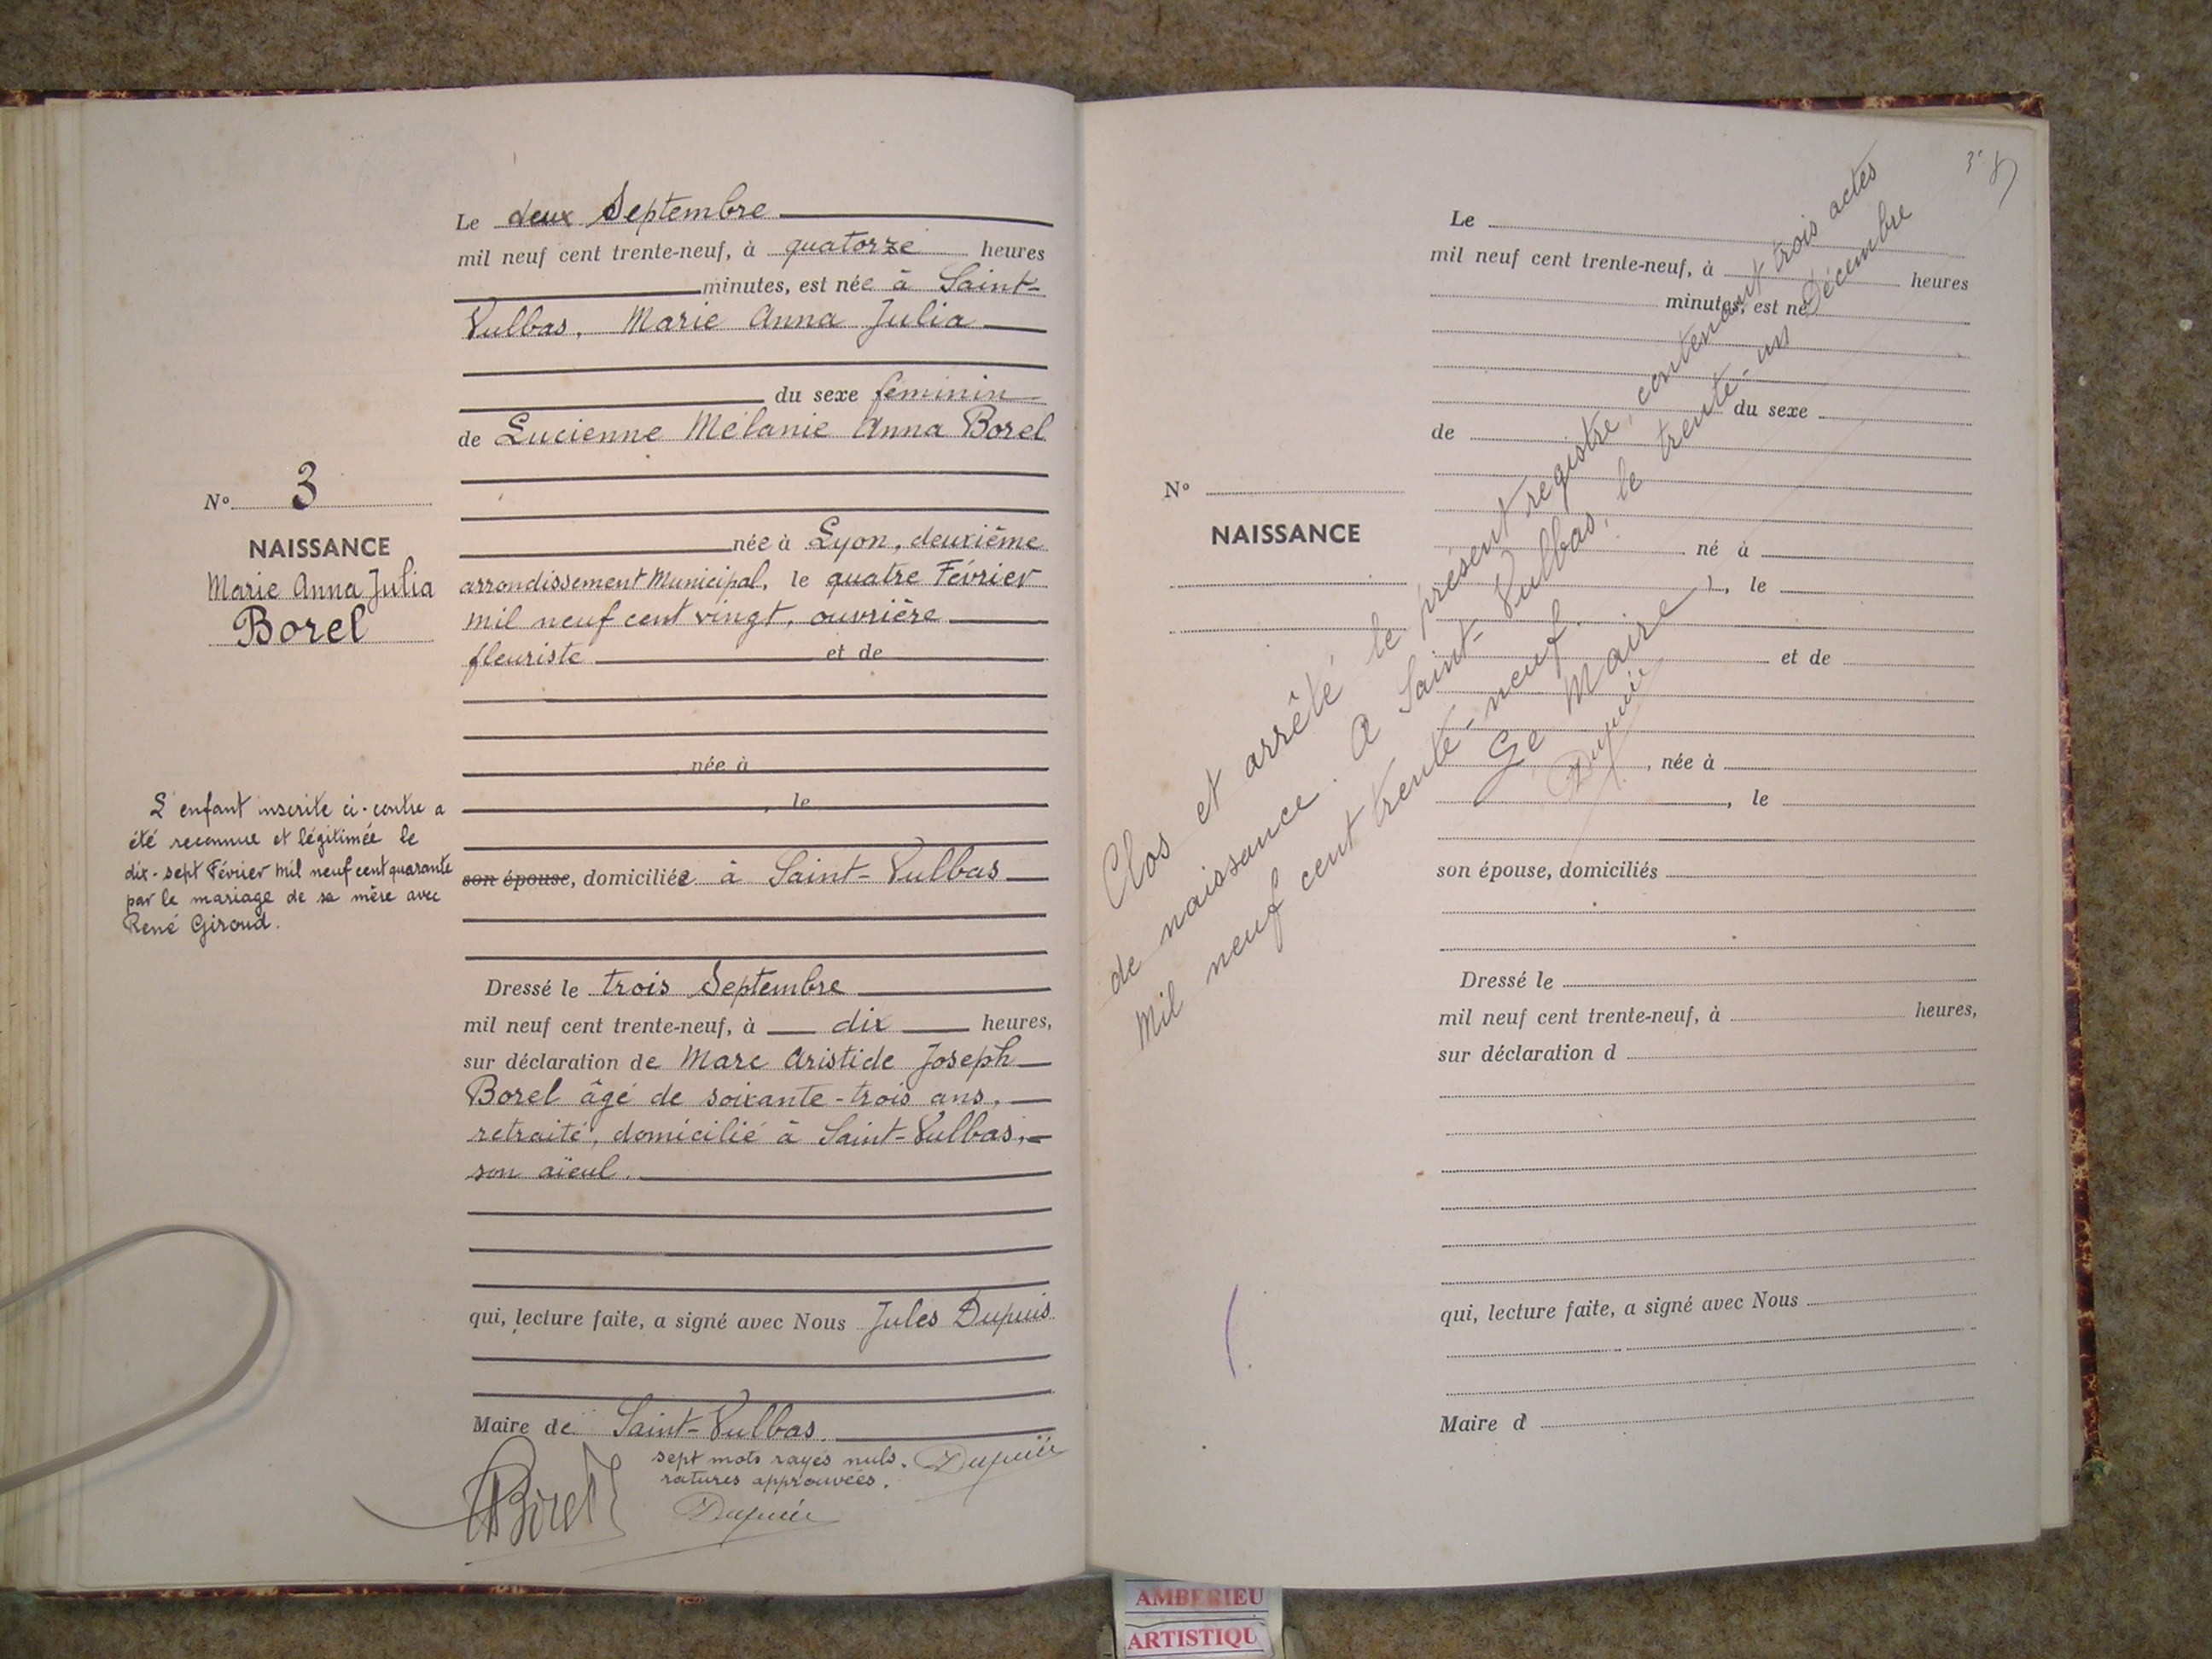 Le deux Septembre
mil neuf cent trente-neuf, à quatorze heures
minutes, est née à Saint-
Vulbas, Marie Anna Julia
du sexe féminin
de Lucienne Mélanie Anna Borel
née à Lyon, deuxième
arrondissement Municipal, le quatre Février
mil neuf cent vingt, ouvrière
fleuriste et de
née à
, le
son épouse, domiciliée à Saint-Vulbas
Dressé le trois Septembre
mil neuf cent trente-neuf, à dix heures,
sur déclaration de Marc Aristide Joseph
Borel âgé de soixante-trois ans,
retraité, domicilié à Saint-Vulbas,
son aïeul.
qui, lecture faite, a signé avec Nous Jules Dupuis
Maire de Saint-Vulbas.
sept mots rayés nuls.
ratures approuvées.
Dupuis
Dupuis
Borel
N° 3
NAISSANCE
Marie Anna Julia
Borel
L'enfant inscrite ci-contre a
été reconnue et légitimée le
dix-sept Février mil neuf cent quarante
par le mariage de sa mère avec
René Giroud.
Le
mil neuf cent trente-neuf, à heures
minutes, est né
du sexe
de
né à
, le
et de
, née à
, le
son épouse, domiciliés
Dressé le
mil neuf cent trente-neuf, à heures,
sur déclaration d
qui, lecture faite, a signé avec Nous
Maire d
N°
NAISSANCE
Clos et arrêté le présent registre, contenant trois actes
de naissance. A Saint-Vulbas, le trente-un Décembre
mil neuf cent trente-neuf.
Le Maire
Dupuis
AMBERIEU
ARTISTIQU